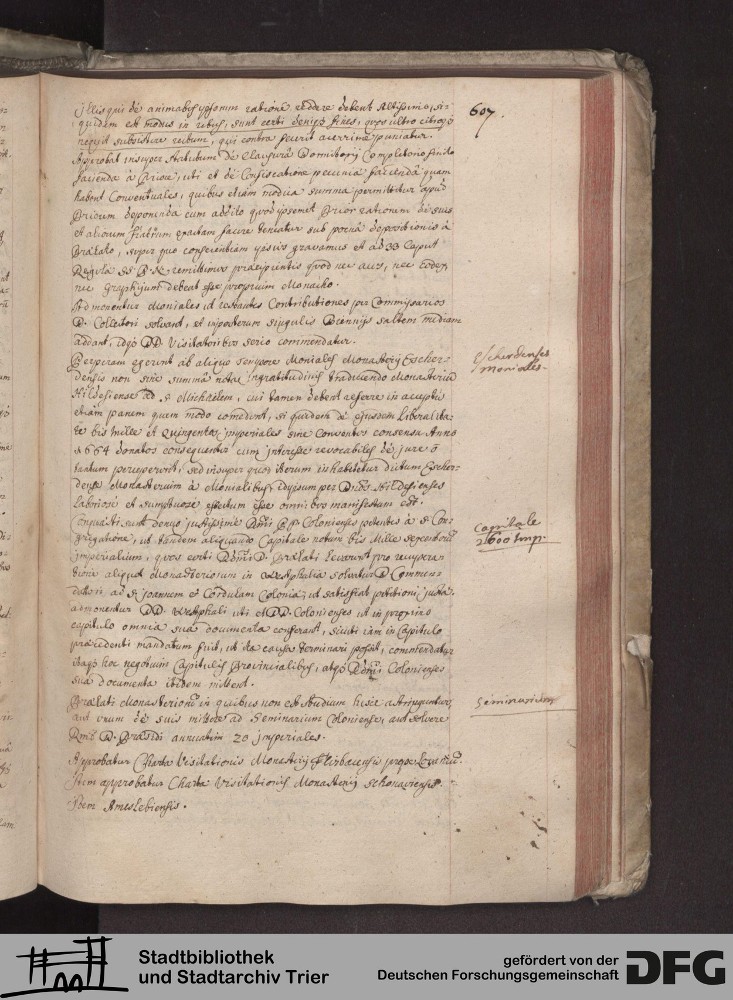 607.
illis qui de animabus ipsorum rationẽ reddere debent Altissimo, si-
quidem est modus in rebus, sunt certi deniq̃ fines, quos ultra citraq̃
nequit subsistere rectum, qui contra fecerit acerrime puniatur.
Approbat insuper statutum de Clausura Dormitorij Completorio finito
facienda à Priore, uti et de Confiscatione pecuniæ faciendâ quam
habent Conventuales, quibus etiam modica summa permittitur apud
Priorem deponenda cum addito quod ipsemet Prior rationem de suis
et aliorum fratrum exactam facere teneatur sub poena depositionis à
Prælato, super quo conscientiam ipsius gravamus et ad 33 Caput
Regulæ SS. P. N. remittimus præcipientis quod nec aliis, nec codex,
nec graphium debeat esse proprium Monacho.
Admonentur Moniales ut restantes Contributiones per Commissarios
D. Collectori solvant, et inposterum singulis Biennijs saltem mediam
addant, idq̃ DD. Visitatoribus serio commendatur.
Perperam egerunt ab aliquo tempore Moniales Monasterij Escher-
densis non sine summa nota ingratitudinis traducendo Monasteriũ
Hildesiense ad S. Michaëlem, cui tamen debent referre in acceptis
etiam panem quem modo comedunt, si quidem de ejusdem liberalita-
te bis mille et quingentos imperiales sine Conventus consensu Anno
1664 donatos consequenter cum interesse revocabiles de jure
tantum perceperunt, sed insuper quod iterum inhabitetur dictum Escher-
dense Monasterium à Monialibus idipsum per D. Hildesienses
laboriose et sumptuose effectum esse omnibus manifestum est.
Conquæsti sunt denuo justissime Rmi PP. Colonienses petentes à S. Con-
gregatione, ut tandem aliquando Capitale notum bis Mille sexcentorũ
imperialium, quos certi Rdmi D. Prælati levarunt pro recupera-
tione aliquot monasteriorum in Westphalia solvatur D. Commen-
datori ad S. Joannem et Cordulam Coloniæ, ut satisfiat petitioni justæ.
admonentur DD. Westphali uti et DD. Colonienses ut in proximo
capitulo omnia sua documenta conferant, sicuti iam in Capitulo
præcedenti mandatum fuit, ut ita causa terminari possit, commendatur
itaq̃ hoc negotium Capitulis Provincialibus, atq̃ Rdmi Colonienses
sua documenta ibidem mittent.
Prælati Monasteriorũ in quibus non est studium hisce astringuntur,
aut unum de suis mittere ad Seminarium Coloniense, aut solvere
Rmo D. Præsidi annuatim 20 imperiales.
Approbatur Charta Visitationis Monasterij
Item approbatur Charta Visitationis Monasterij Schonaviensis.
Item Amelebiensis.
Escherdenses
Moniales.
Capitale
2600 Imp.
Seminarium
Stadtbibliothek
und Stadtarchiv Trier
gefördert von der
Deutschen Forschungsgemeinschaft
DFG